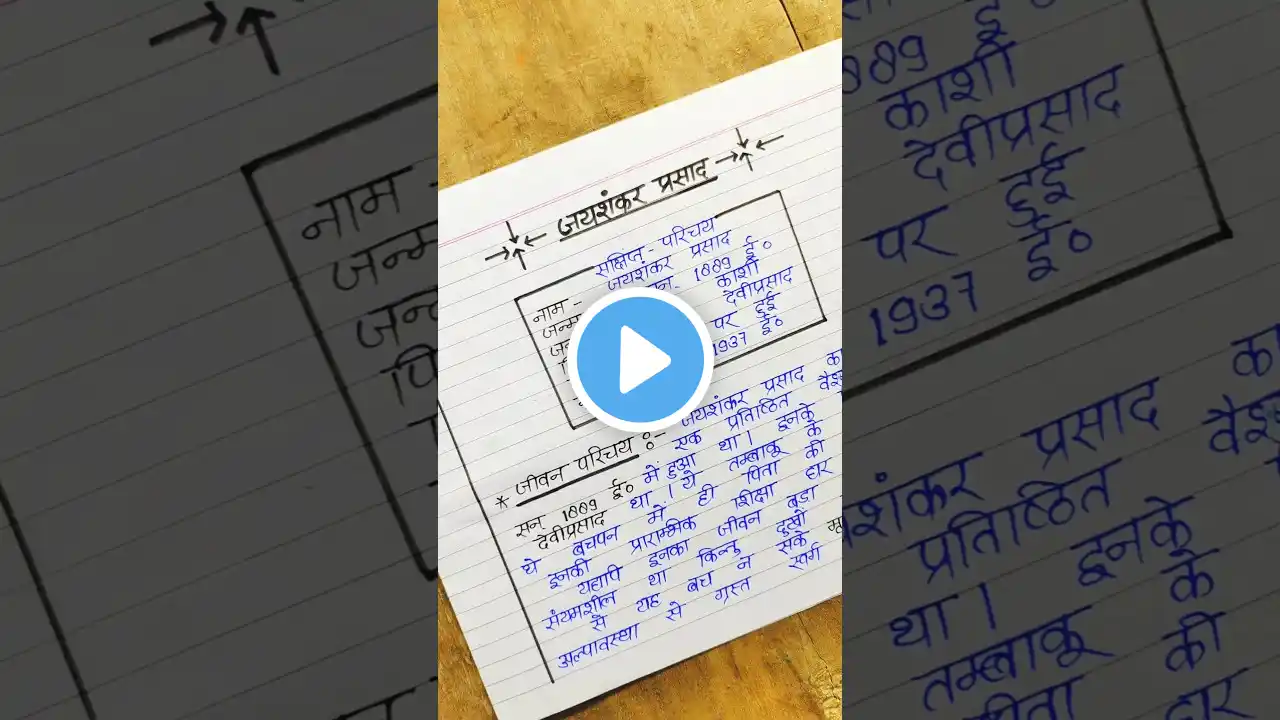 जयशंकर प्रसाद
सक्षिप्त - परिचय
नाम - जयशंकर प्रसाद
1889 ई०
काशी
देवीप्रसाद
पर हुई
1937 ई०
* जीवन परिचय :- जयशंकर प्रसाद का
एक प्रतिष्ठित
सन् 1889 ई० में हुआ था। इनके
देवीप्रसाद था । ये तम्बाकू के
थे बचपन मे ही पिता की
इनकी प्रारम्भिक शिक्षा
यद्यपि इनका जीवन बड़ा
संयमशील था किन्तु दुखों
से यह बच न सके
अल्पावस्था से ग्रस्त स्वर्ग